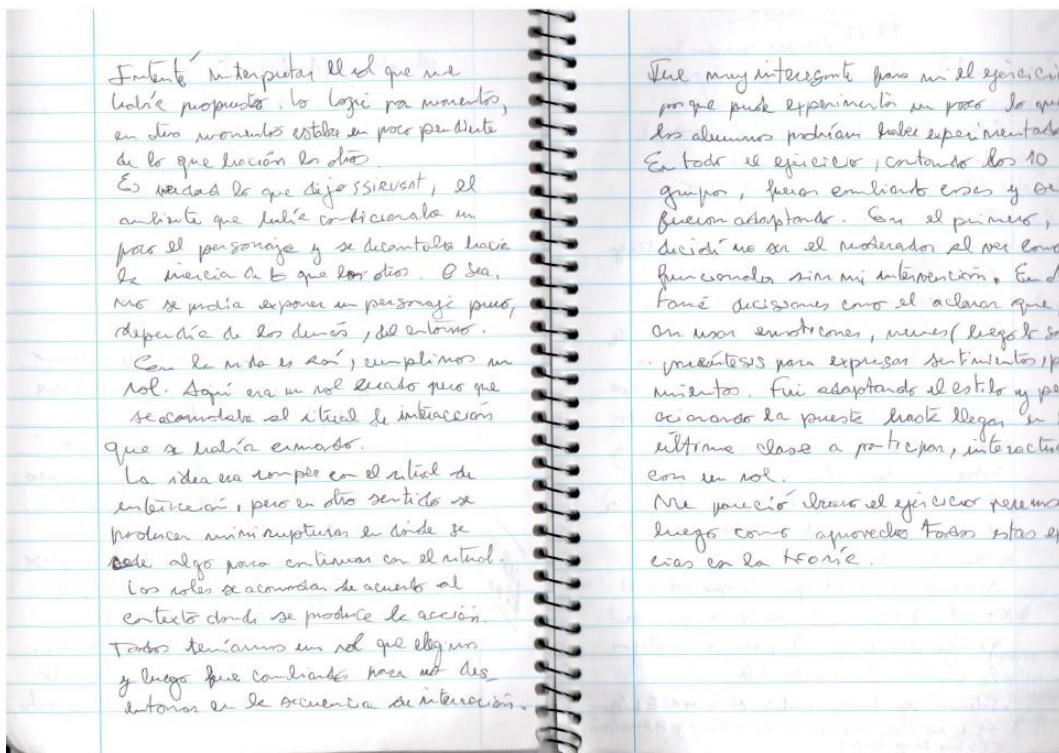 Intenté interpretar el rol que me
había propuesto. Lo logré por momentos,
en otros momentos estaba un poco pendiente
de lo que hacían los otros.
Es verdad lo que dijo SSIRVENT, el
ambiente que había condicionaba un
poco el personaje y se decantaba hacia
la inercia de lo que los otros. O sea,
no se podía exponer un personaje puro,
dependía de los demás, del entorno.
Con la vida es así, cumplimos un
rol. Aquí era un rol creado pero que
se acomodaba al ritual de interacción
que se había armado.
La idea era romper con el ritual de
interacción, pero en otro sentido se
producen mini rupturas en donde se
cede algo para continuar con el ritual.
Los roles se acomodan de acuerdo al
contexto donde se produce la acción.
Todos teníamos un rol que elegimos
y luego fue cambiando para no des_
entonar en la secuencia de interacción.
Fue muy interesante para mi el ejercici
porque pude experimentar un poco lo que
los alumnos podrían haber experimentado
En todo el ejercicio, contando los 10
grupos, fueron cambiando cosas y se
fueron adaptando. En el primero,
decidí no ser el moderador al ver como
funcionaba sin mi intervención. En
tomé decisiones como el aclarar que
usar emoticones, memes (luego lo
paréntesis para expresar sentimientos, p
mientos. Fui adaptando el estilo y pe
cionando la puesta hasta llegar en
última clase a participar, interactu
con un rol.
Me pareció bueno el ejercicio veremos
luego como aprovecho todas estas e
cias con la teoría.